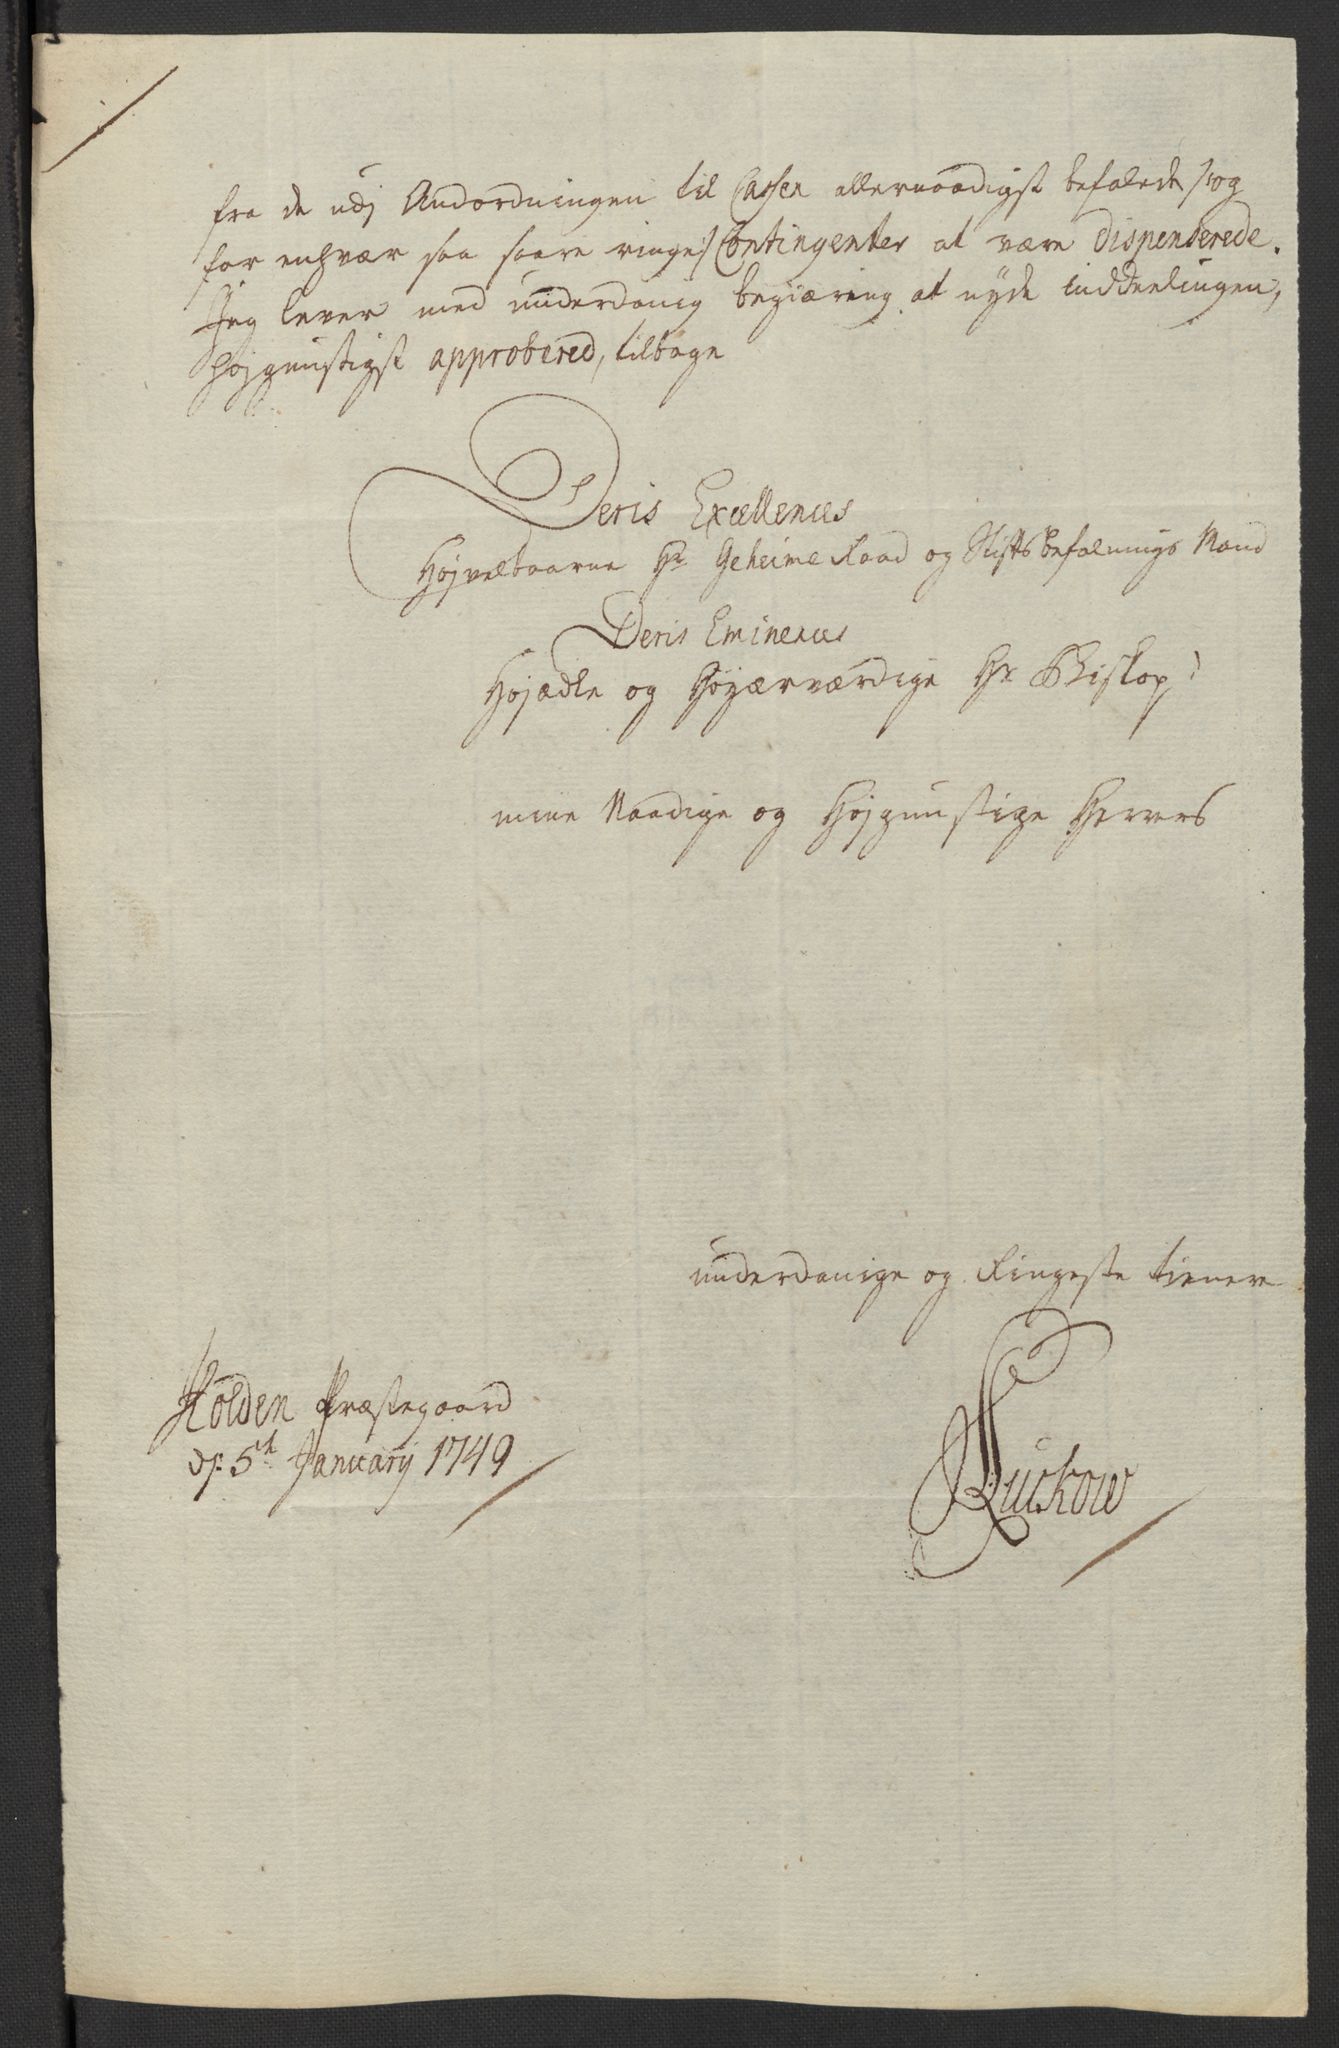 fra de udj Andordningen til Cassen allernaadigst befalede /: og
for enhvær saa saare ringe :/ Contingenter at være dispenserede.
Jeg lever med underdanig begiæring at nyde inddeelingen,
højgunstigst approbered, tilbage
Deris Excellences
Højvelbaarne Hr Geheime Raad og Stiftsbefalnings Mand
Deris Eminences
Højædle og Højærværdige Hr Biskop
mine Naadige og Højgunstige Herrers
underdanige og Ringeste tienere
Holden Præstegaard
d: 5te January 1749
Luckow